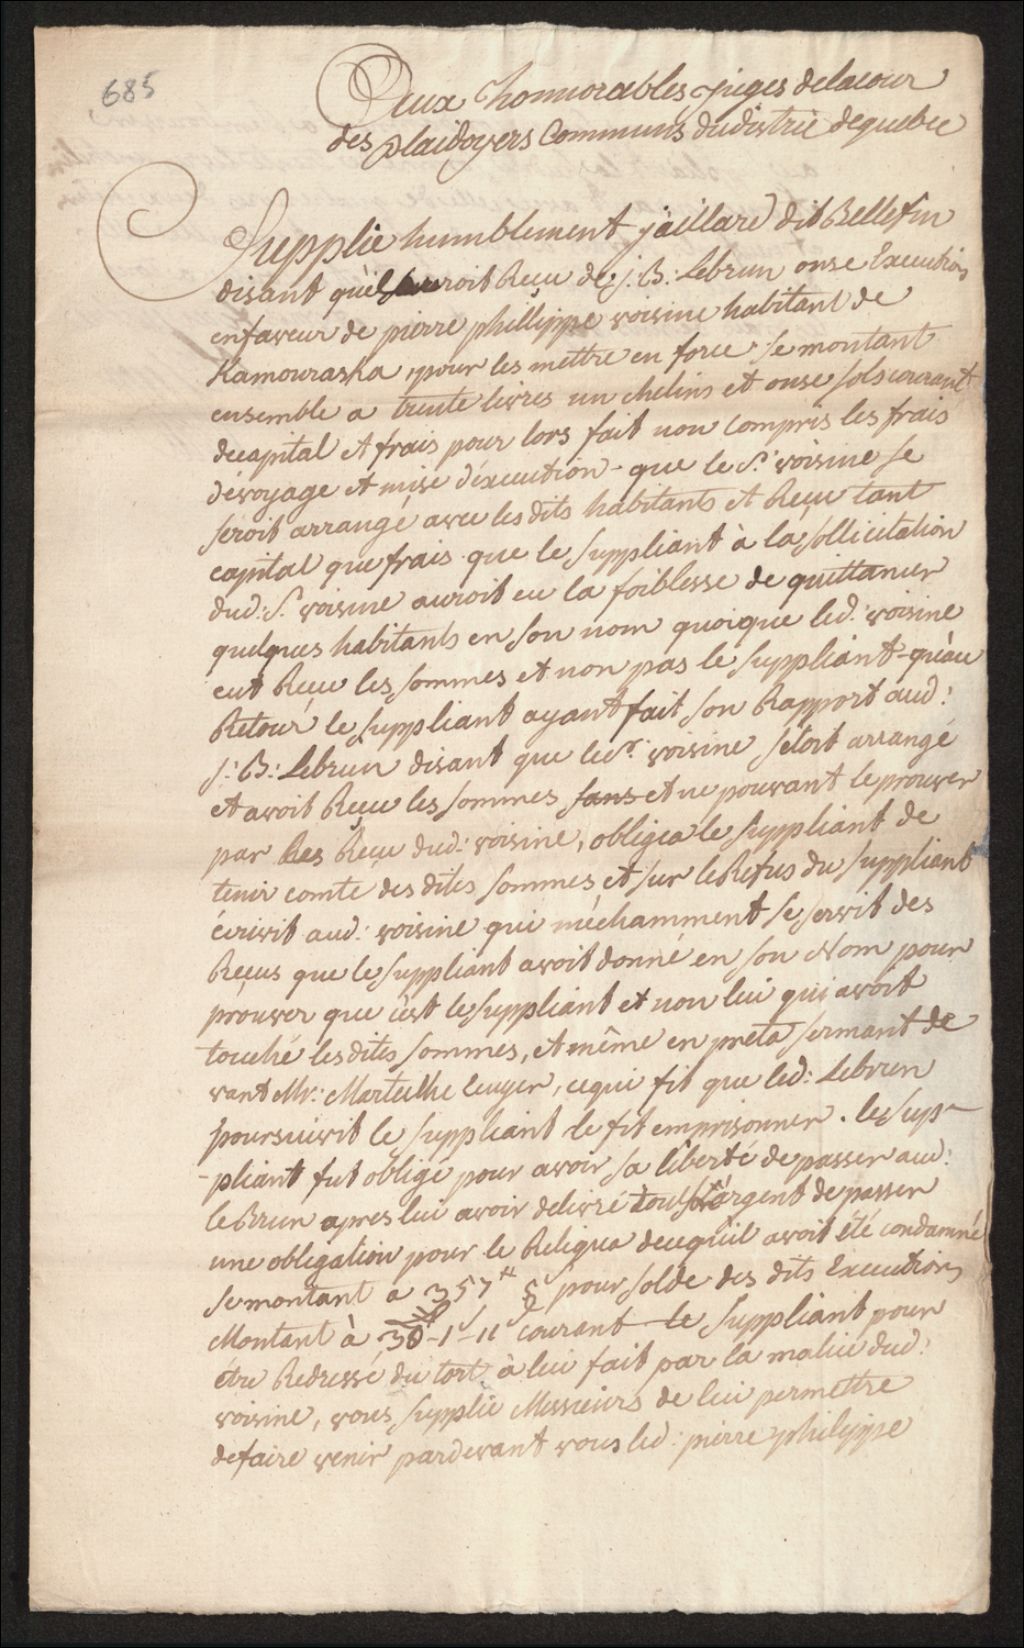 685
Aux honnorables juges delacour
des plaidoyers Communs dudistric dequebec
Supplie humblement jaillard dit Bellefin
disant qu'il auroit Reçu de j. B: Lebrun onse Executions
enfaveur de pierre phillippe voisine habitant de
Kamouraska, pour les mettre en force se montant
ensemble a trente livres un chelins et onse sols courant
decapital et frais pour lors fait non compris les frais
dévoyage et mise d'éxecution - que le S.r voisine se
seroit arrangé avec les dits habitants et Recu tant
capital que frais que le suppliant à la sollicitation
dud: S. voisine auroit eu la foiblesse de quittancer
quelques habitants en son nom quoique led. voisine
eut Reçu les sommes et non pas le suppliant - qu'au
Retour le suppliant ayant fait son Rapport aud:
j: B: Lebrun disant que led.r voisine s'étoit arrangé
et avoit Reçu les sommes sans et ne pouvant le prouver
par les Reçu dud: voisine, obligea le suppliant de
tenir comte des dites sommes et sur le Refus du suppliant
écrivit aud: voisine qui méchamment se servit des
Reçus que le suppliant avoit donné en son Nom pour
prouver que c'est le suppliant et non lui qui avoit
touché les dites sommes, et même en preta serment de
vant Mr: Marteilhe Ecuyer, cequi fit que led: Lebrun
poursuivit le suppliant le fit emprisonner. le sup-
-pliant fut obligé pour avoir sa liberté de passer aud:
le Brun apres lui avoir delivré tous l'argent de passer
une obligation pour le Reliqua decequ'il avoit été condamné
se montant a 357 ₶ 5s pour solde des dits Executions
Montant à 30-1s-11 courant le suppliant pour
étre Redressé du tort à lui fait par la malice dud:
voisine, vous supplie Messieurs de lui permettre
defaire venir pardevant vous led: pierre philippe